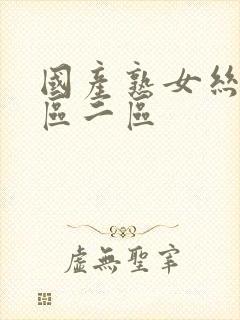 國產熟女絲
區二區
虛無聖宰